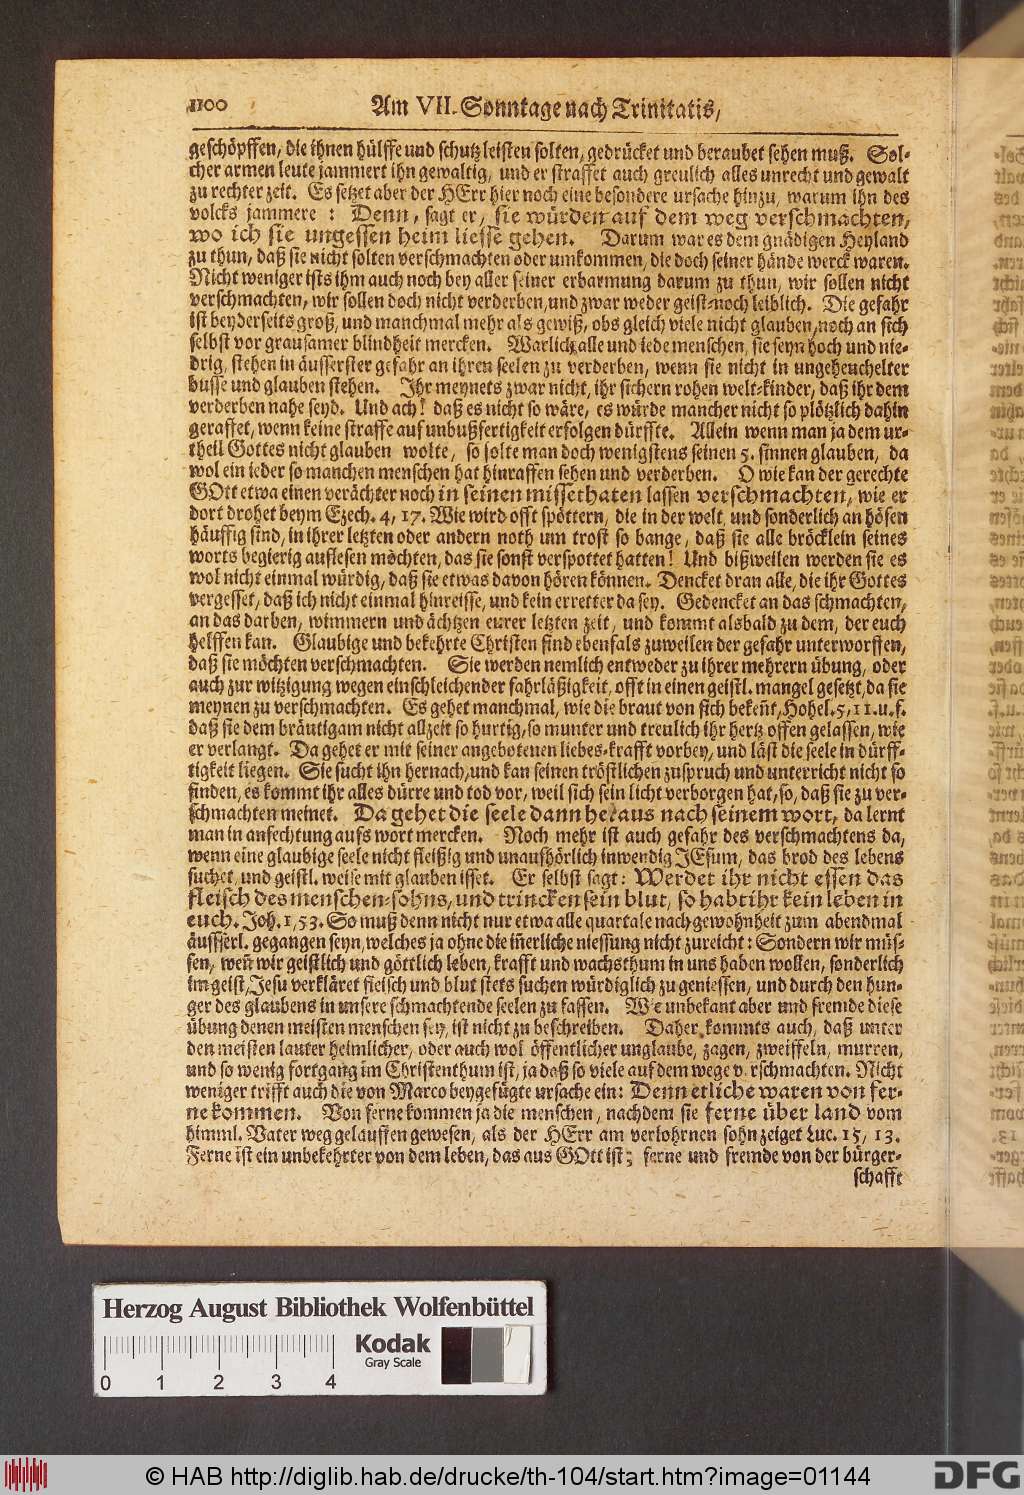 1100 Am VII. Sonntage nach Trinitatis,
geschöpffen, die ihnen hülffe und schutz leisten solten, gedrücket und beraubet sehen muß. Sol-
cher armen leute jammert ihn gewaltig, und er straffet auch greulich alles unrecht und gewalt
zu rechter zeit. Es setzet aber der HErr hier noch eine besondere ursache hinzu, warum ihn des
volcks jammere : Denn, sagt er, sie würden auf dem weg verschmachten,
wo ich sie ungessen heim liesse gehen. Darum war es dem gnädigen Heyland
zu thun, daß sie nicht solten verschmachten oder umkommen, die doch seiner hände werck waren.
Nicht weniger ists ihm auch noch bey aller seiner erbarmung darum zu thun, wir sollen nicht
verschmachten, wir sollen doch nicht verderben, und zwar weder geist-noch leiblich. Die gefahr
ist beyderseits groß, und manchmal mehr als gewiß, obs gleich viele nicht glauben, noch an sich
selbst vor grausamer blindheit mercken. Warlich, alle und iede menschen, sie seyn hoch und nie-
drig, stehen in äusserster gefahr an ihren seelen zu verderben, wenn sie nicht in ungeheuchelter
busse und glauben stehen. Ihr meynets zwar nicht, ihr sichern rohen welt-kinder, daß ihr dem
verderben nahe seyd. Und ach! daß es nicht so wäre, es würde mancher nicht so plötzlich dahin
geraffet, wenn keine straffe auf unbußfertigkeit erfolgen dürffte. Allein wenn man ja dem ur-
theil Gottes nicht glauben wolte, so solte man doch wenigstens seinen 5. sinnen glauben, da
wol ein ieder so manchen menschen hat hinraffen sehen und verderben. O wie kan der gerechte
GOtt etwa einen verächter noch in seinen missethaten lassen verschmachten, wie er
dort drohet beym Ezech. 4, 17. Wie wird offt spöttern, die in der welt, und sonderlich an höfen
häuffig sind, in ihrer letzten oder andern noth um trost so bange, daß sie alle bröcklein seines
worts begierig auflesen möchten, das sie sonst verspottet hatten! Und bißweilen werden sie es
wol nicht einmal würdig, daß sie etwas davon hören können. Dencket dran alle, die ihr Gottes
vergesset, daß ich nicht einmal hinreisse, und kein erretter da sey. Gedencket an das schmachten,
an das darben, wimmern und ächtzen eurer letzten zeit, und kommt alsbald zu dem, der euch
helffen kan. Glaubige und bekehrte Christen sind ebenfals zuweilen der gefahr unterworffen,
daß sie möchten verschmachten. Sie werden nemlich entweder zu ihrer mehrern übung, oder
auch zur witzigung wegen einschleichender fahrläßigkeit, offt in einen geistl. mangel gesetzt, da sie
meynen zu verschmachten. Es gehet manchmal, wie die braut von sich bekeñt, Hohel. 5, 11. u. f.
daß sie dem bräutigam nicht allzeit so hurtig, so munter und treulich ihr hertz offen gelassen, wie
er verlangt. Da gehet er mit seiner angebotenen liebes-krafft vorbey, und läst die seele in dürff-
tigkeit liegen. Sie sucht ihn hernach, und kan seinen tröstlichen zuspruch und unterricht nicht so
finden, es kommt ihr alles dürre und tod vor, weil sich sein licht verborgen hat, so, daß sie zu ver-
schmachten meinet. Da gehet die seele dann heraus nach seinem wort, da lernt
man in anfechtung aufs wort mercken. Noch mehr ist auch gefahr des verschmachtens da,
wenn eine glaubige seele nicht fleißig und unaufhörlich inwendig JEsum, das brod des lebens
suchet, und geistl. weise mit glauben isset. Er selbst sagt: Werdet ihr nicht essen das
fleisch des menschen-sohns, und trincken sein blut, so habt ihr kein leben in
euch. Joh. 1, 53. So muß denn nicht nur etwa alle quartale nach gewohnheit zum abendmal
äusserl. gegangen seyn, welches ja ohne die iñerliche niessung nicht zureicht: Sondern wir müs-
sen, weñ wir geistlich und göttlich leben, krafft und wachsthum in uns haben wollen, sonderlich
im geist, Jesu verkläret fleisch und blut stets suchen würdiglich zu geniessen, und durch den hun-
ger des glaubens in unsere schmachtende seelen zu fassen. Wie unbekant aber und fremde diese
übung denen meisten menschen sey, ist nicht zu beschreiben. Daher kommts auch, daß unter
den meisten lauter heimlicher, oder auch wol öffentlicher unglaube, zagen, zweiffeln, murren,
und so wenig fortgang im Christenthum ist, ja daß so viele auf dem wege verschmachten. Nicht
weniger trifft auch die von Marco beygefügte ursache ein: Denn etliche waren von fer-
ne kommen. Von ferne kommen ja die menschen, nachdem sie ferne über land vom
himml. Vater weggelauffen gewesen, als der HErr am verlohrnen sohn zeiget Luc. 15, 13.
Ferne ist ein unbekehrter von dem leben, das aus GOtt ist; ferne und fremde von der bürger-
schafft
Herzog August Bibliothek Wolfenbüttel
Kodak
Gray Scale
0 1 2 3 4
© HAB http://diglib.hab.de/drucke/th-104/start.htm?image=01144
DFG